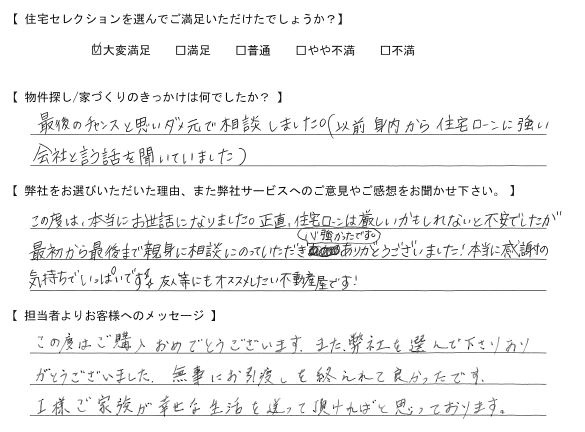 【 住宅セレクションを選んでご満足いただけたでしょうか？】
☑大変満足 □満足 □普通 □やや不満 □不満
【 物件探し/家づくりのきっかけは何でしたか？ 】
最後のチャンスと思いダメ元で相談しました。(以前身内から住宅ローンに強い
会社と言う話を聞いていました)
【 弊社をお選びいただいた理由、また弊社サービスへのご意見やご感想をお聞かせ下さい。 】
この度は、本当にお世話になりました。正直、住宅ローンは厳しいかもしれないと不安でしたが
最初から最後まで親身に相談にのっていただき心強かったです。ありがとうございました！本当に感謝の
気持ちでいっぱいです。友人等にもオススメしたい不動産屋です！
【 担当者よりお客様へのメッセージ 】
この度はご購入おめでとうございます。また、弊社を選んで下さりあり
がとうございました。無事にお引渡しを終えれて良かったです。
I様ご家族が幸せな生活を送って頂ければと思っております。